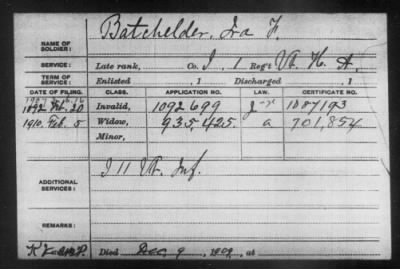 NAME OF SOLDIER: Batchelder, Ira F.
SERVICE: Late rank, Co. I, 1 Reg't Vt. H. A.
TERM OF SERVICE: Enlisted , 1 Discharged , 1
DATE OF FILING. CLASS. APPLICATION NO. LAW. CERTIFICATE NO.
1892 Feb. 20 Invalid, 1092699 1087193
1910, Feb. 5 Widow, 935,425. a 701,854
Minor,
ADDITIONAL SERVICES: I 11 Vt. Inf.
REMARKS:
Died Dec. 9, 1909, at